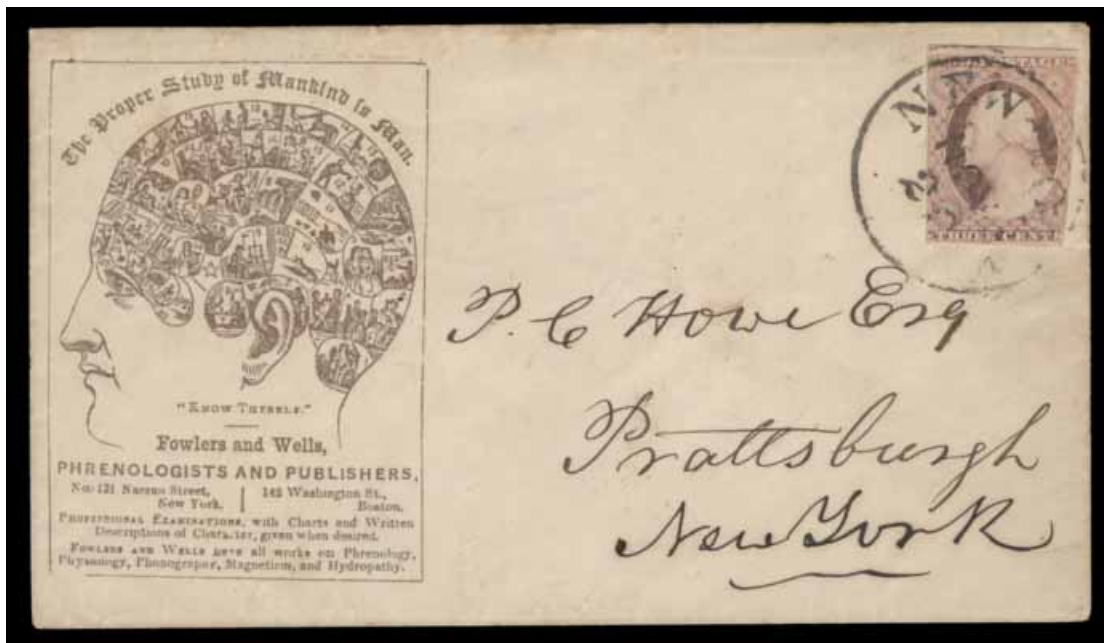 The Proper Study of Mankind is Man.
"KNOW THYSELF."
Fowlers and Wells,
PHRENOLOGISTS AND PUBLISHERS,
No. 131 Nassau Street,
New York.
142 Washington St.,
Boston.
PROFESSIONAL EXAMINATIONS, with Charts and Written
Descriptions of Character, given when desired.
FOWLERS AND WELLS have all works on Phrenology,
Physiology, Phonography, Magnetism, and Hydropathy.
NEW
THREE CENTS
P. C Howe Esq
Prattsburgh
New York